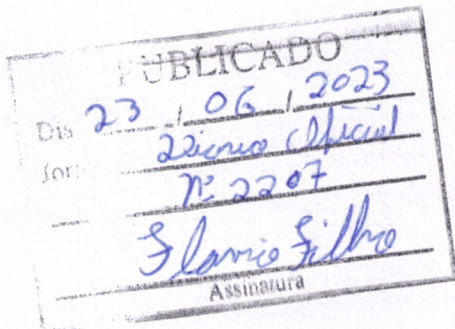 PUBLICADO
Dia 23 / 06 / 2023
Jor:
Diário Oficial
Nº 2207
Flavio Filho
Assinatura